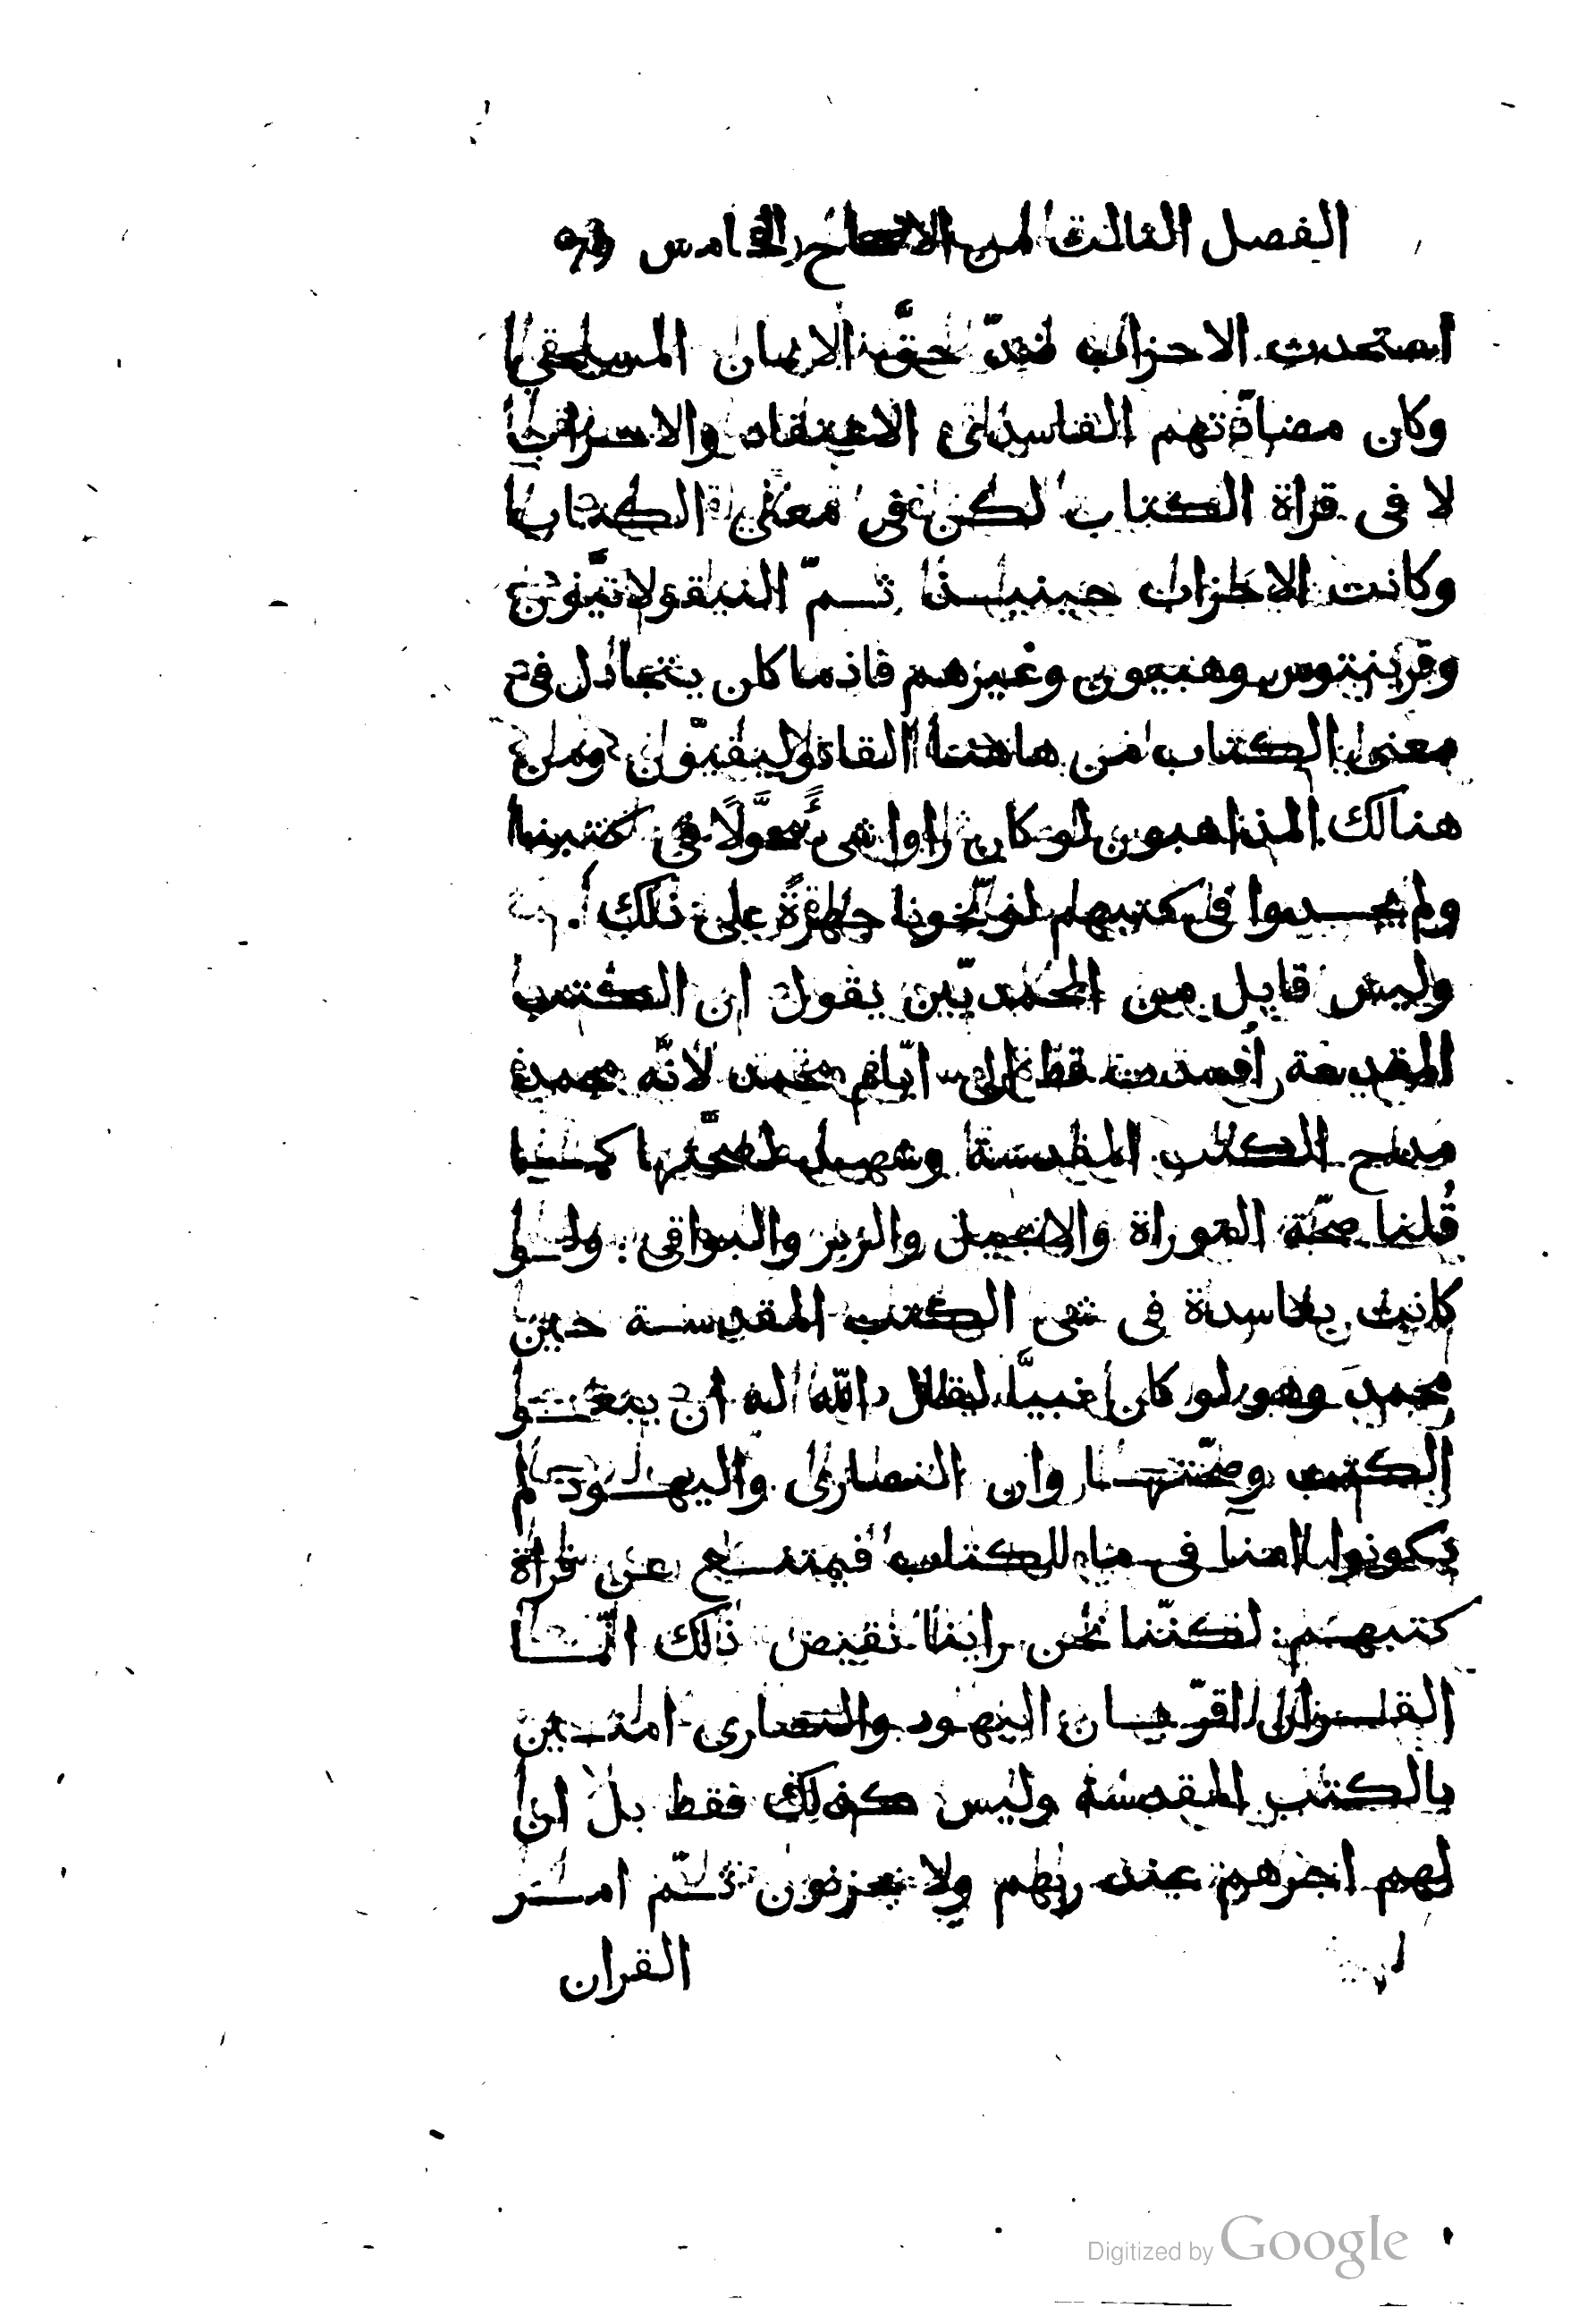 الفصل الثالث من الاصحاح الخامس
استحدث الاحزاب ضدّ حقّ الايمان المسيحى
وكان مضادّتهم الفاسدى الاعتقاد والاحزاب
لا فى قراة الكتاب لكن فى معنى الكتاب
وكانت الاحزاب حينيذ ثمّ النيقولاتيّون
وقرينتوس وهبيون وغيرهم فاذما كان يتجادل فى
معنى الكتاب من هاهنا القاثوليقيّون ومن
هنالك المذاهبون لو كان راوا شىءً معوَّلًا فى كتبنا
ولم يجدوا فى كتبهم لوبّخونا جهرةً على ذلك
وليس قايل من المحمديّين يقول ان الكتب
المقدسة أفسدت قطّ الى ايّام محمد لانّه محمد
مدح الكتب المقدسة وشهد لصحّتها كما
قُلنا صحّة التوراة والانجيل والزبر والبواقى ولو
كانت بفاسدة فى شى الكتب المقدسة حين
محمد وهو لو كان نبيًّا لقال الله له ان
الكتب وصحّتها وان النصارى واليهود لم
يكونوا امنا فى ما للكتاب فيمتنع عن قراة
كتبهم لكنّنا نحن راينا نقيض ذلك انّما
القران اقرّ بان اليهود والنصارى امنين
بالكتب المقدسة وليس كذلك فقط بل ان
لهم اجرهم عند ربهم ولا يحزنون ثمّ امر
القران
Digitized by Google